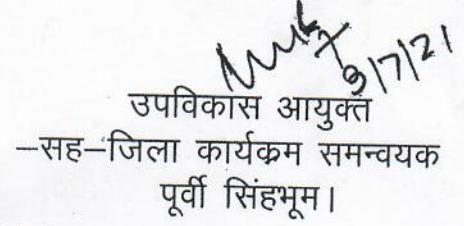 9/7/21
उपविकास आयुक्त
–सह–जिला कार्यक्रम समन्वयक
पूर्वी सिंहभूम।